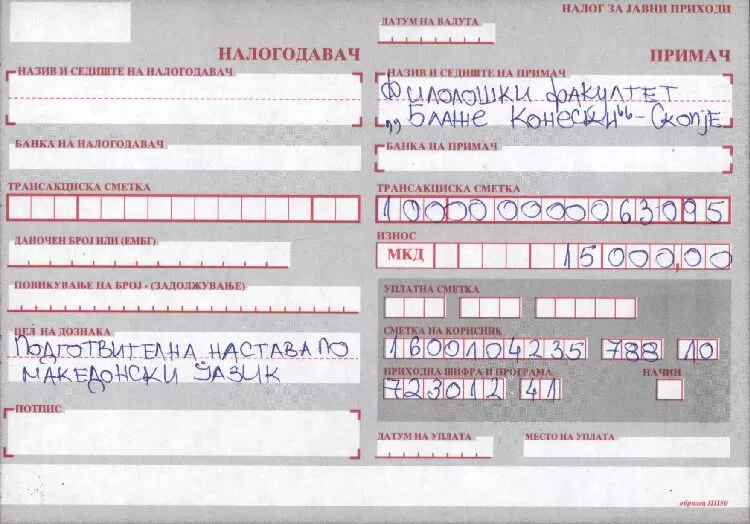 НАЛОГ ЗА ЈАВНИ ПРИХОДИ
ДАТУМ НА ВАЛУТА
НАЛОГОДАВАЧ
ПРИМАЧ
НАЗИВ И СЕДИШТЕ НА НАЛОГОДАВАЧ
НАЗИВ И СЕДИШТЕ НА ПРИМАЧ
Филолошки факултет
„Блаже Конески“ - Скопје
БАНКА НА НАЛОГОДАВАЧ
БАНКА НА ПРИМАЧ
ТРАНСАКЦИСКА СМЕТКА
ТРАНСАКЦИСКА СМЕТКА
100000000063095
ДАНОЧЕН БРОЈ ИЛИ (ЕМБГ)
ИЗНОС
МКД 15000,00
ПОВИКУВАЊЕ НА БРОЈ - (ЗАДОЛЖУВАЊЕ)
УПЛАТНА СМЕТКА
ЦЕЛ НА ДОЗНАКА
ПОДГОТВИТЕЛНА НАСТАВА ПО
МАКЕДОНСКИ ЈАЗИК
СМЕТКА НА КОРИСНИК
1600104235 788 10
ПРИХОДНА ШИФРА И ПРОГРАМА
НАЧИН
723012 41
ПОТПИС
ДАТУМ НА УПЛАТА
МЕСТО НА УПЛАТА
образец ПП50